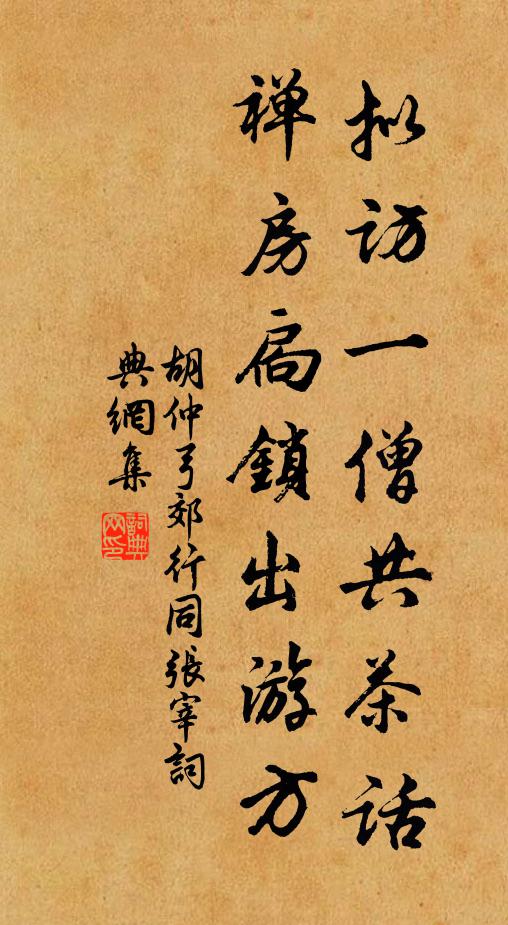 拟访一僧共茶话
禅房扃鎖出游方
胡仲弓郊行同張宰詞
典網集
詞典
网印